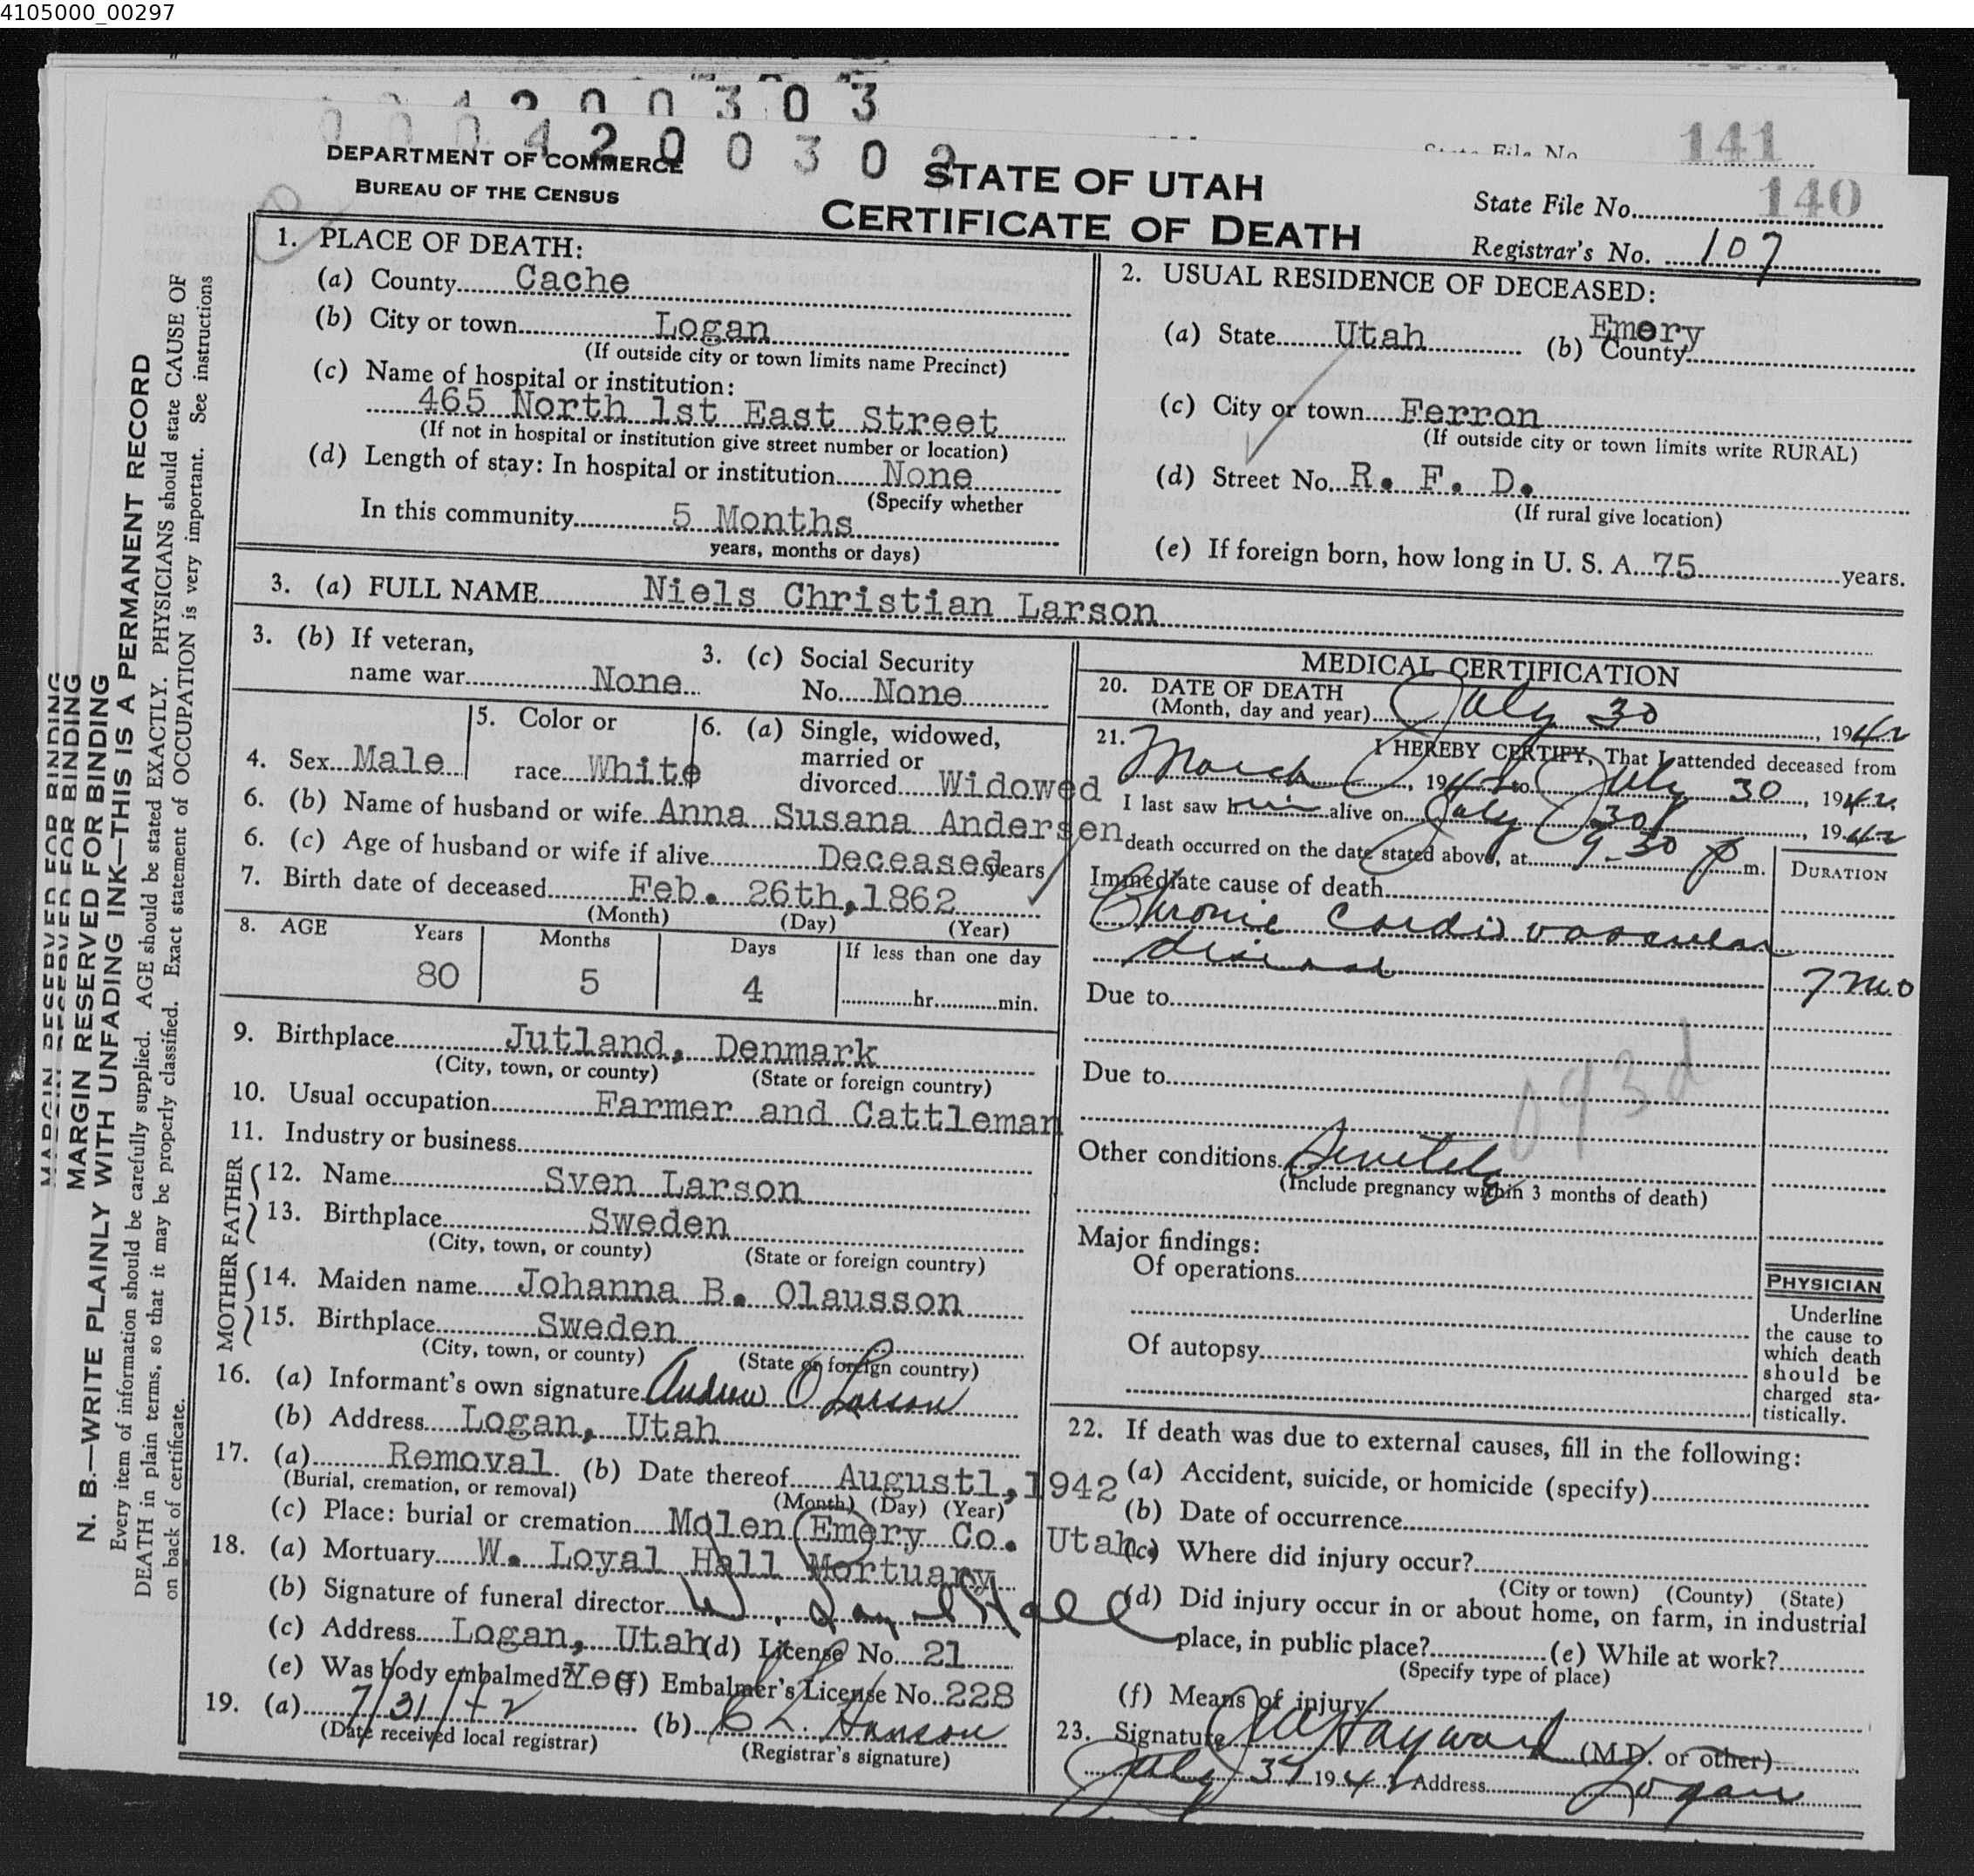 4105000_00297
0 0 4 2 0 0 3 0 3
0 0 0 4 2 0 0 3 0 2
141
State File No.
DEPARTMENT OF COMMERCE
BUREAU OF THE CENSUS
STATE OF UTAH
CERTIFICATE OF DEATH
State File No. 140
Registrar's No. 107
MARGIN RESERVED FOR BINDING
N. B.—WRITE PLAINLY WITH UNFADING INK—THIS IS A PERMANENT RECORD
Every item of information should be carefully supplied. AGE should be stated EXACTLY. PHYSICIANS should state CAUSE OF
DEATH in plain terms, so that it may be properly classified. Exact statement of OCCUPATION is very important. See instructions
on back of certificate.
1. PLACE OF DEATH:
(a) County Cache
(b) City or town Logan
(If outside city or town limits name Precinct)
(c) Name of hospital or institution:
465 North 1st East Street
(If not in hospital or institution give street number or location)
(d) Length of stay: In hospital or institution None
(Specify whether
In this community 5 Months
years, months or days)
2. USUAL RESIDENCE OF DECEASED:
(a) State Utah (b) County Emery
(c) City or town Ferron
(If outside city or town limits write RURAL)
(d) Street No. R. F. D.
(If rural give location)
(e) If foreign born, how long in U. S. A. 75 years.
3. (a) FULL NAME Niels Christian Larson
3. (b) If veteran,
name war None
3. (c) Social Security
No. None
4. Sex Male
5. Color or
race White
6. (a) Single, widowed,
married or
divorced Widowed
6. (b) Name of husband or wife Anna Susana Andersen
6. (c) Age of husband or wife if alive Deceased years
7. Birth date of deceased Feb. 26th, 1862
(Month) (Day) (Year)
8. AGE Years Months Days If less than one day
80 5 4 hr. min.
9. Birthplace Jutland, Denmark
(City, town, or county) (State or foreign country)
10. Usual occupation Farmer and Cattleman
11. Industry or business
FATHER
12. Name Sven Larson
13. Birthplace Sweden
(City, town, or county) (State or foreign country)
MOTHER
14. Maiden name Johanna B. Olausson
15. Birthplace Sweden
(City, town, or county) (State or foreign country)
16. (a) Informant's own signature Andrew O Larson
(b) Address Logan, Utah
17. (a) Removal (b) Date thereof August 1, 1942
(Burial, cremation, or removal) (Month) (Day) (Year)
(c) Place: burial or cremation Molen Emery Co. Utah.
18. (a) Mortuary W. Loyal Hall Mortuary
(b) Signature of funeral director W. Loyal Hall
(c) Address Logan, Utah (d) License No. 21
(e) Was body embalmed? Yes (f) Embalmer's License No. 228
19. (a) 7/31/42 (b) C L. Hanson
(Date received local registrar) (Registrar's signature)
MEDICAL CERTIFICATION
20. DATE OF DEATH
(Month, day and year) July 30, 1942
21. I HEREBY CERTIFY, That I attended deceased from
March, 1942 to July 30, 1942
I last saw him alive on July 30, 1942
death occurred on the date stated above, at 9-30 p m.
DURATION
Immediate cause of death
Chronic Cardio vascular
disease 7 mo
Due to
Due to
093d
Other conditions Senility
(Include pregnancy within 3 months of death)
Major findings:
Of operations
Of autopsy
PHYSICIAN
Underline
the cause to
which death
should be
charged sta-
tistically.
22. If death was due to external causes, fill in the following:
(a) Accident, suicide, or homicide (specify)
(b) Date of occurrence
(c) Where did injury occur?
(City or town) (County) (State)
(d) Did injury occur in or about home, on farm, in industrial
place, in public place? (e) While at work?
(Specify type of place)
(f) Means of injury
23. Signature Hayward (M.D. or other)
July 31 1942 Address Logan